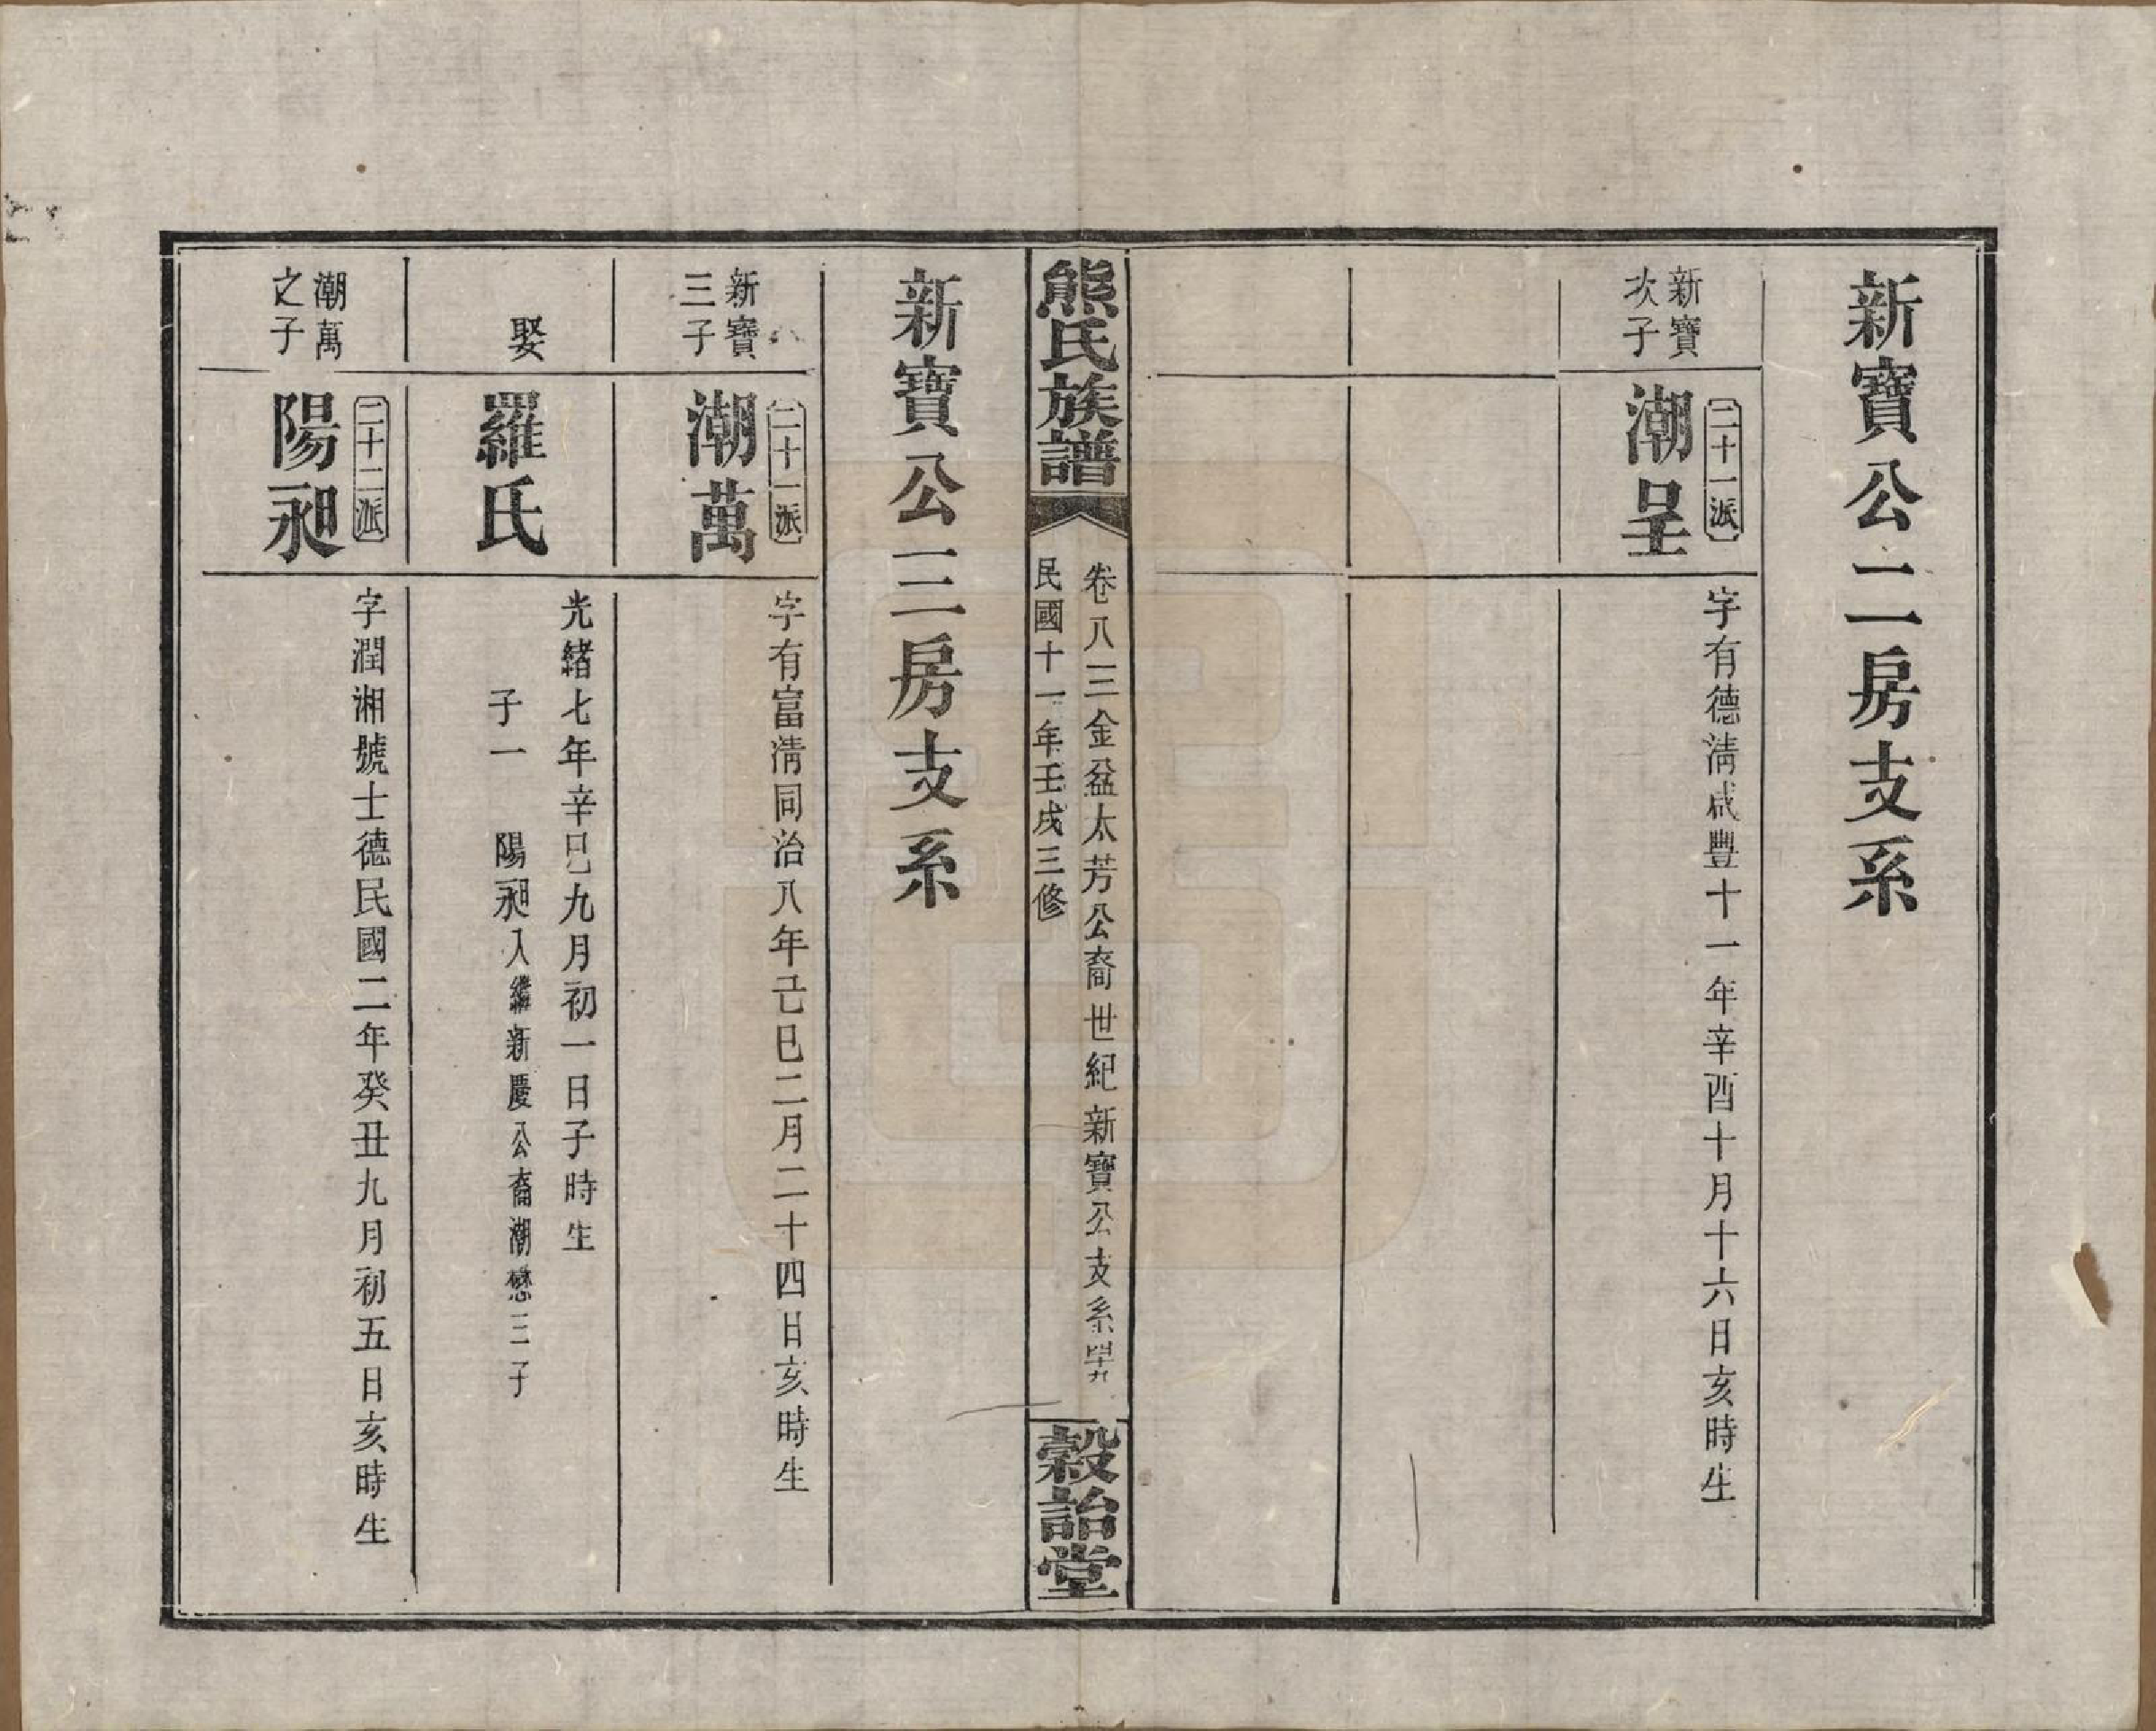 新寶公二房支系
新寶
次子
二十一派
潮呈
字有德淸咸豐十一年辛酉十月十六日亥時生
熊氏族譜
卷八三金盆太芳公裔世紀新寶公支系
民國十一年壬戌三修
穀詒堂
新寶公三房支系
新寶
三子
二十一派
潮萬
字有富淸同治八年己巳二月二十四日亥時生
娶
羅氏
光緖七年辛巳九月初一日子時生
子一 陽昶入繼新慶公裔潮懋三子
潮萬
之子
二十二派
陽昶
字潤湘號士德民國二年癸丑九月初五日亥時生